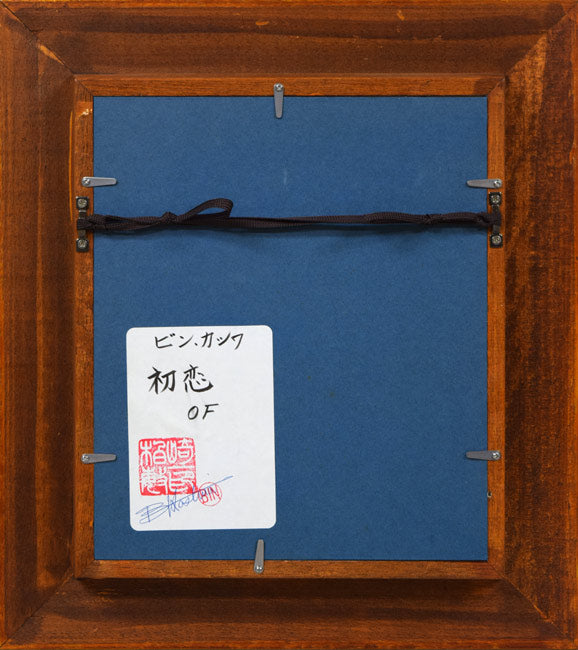 ビン、カツワ
初恋
OF
BIN